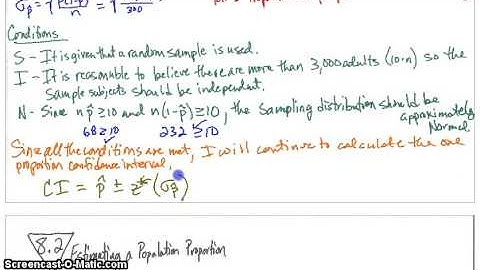 σp̂ = √p(1-p)/n = √ /300
Conditions
S - It is given that a random sample is used.
I - It is reasonable to believe there are more than 3,000 adults (10·n) so the
sample subjects should be independent.
N - Since np̂ ≥ 10 and n(1-p̂) ≥ 10, the sampling distribution should be
approximately
Normal.
68 ≥ 10 232 ≥ 10
Since all the conditions are met, I will continue to calculate the one
proportion confidence interval.
CI = p̂ ± z* (σp̂)
8.2 Estimating a Population Proportion
Screencast-O-Matic.com